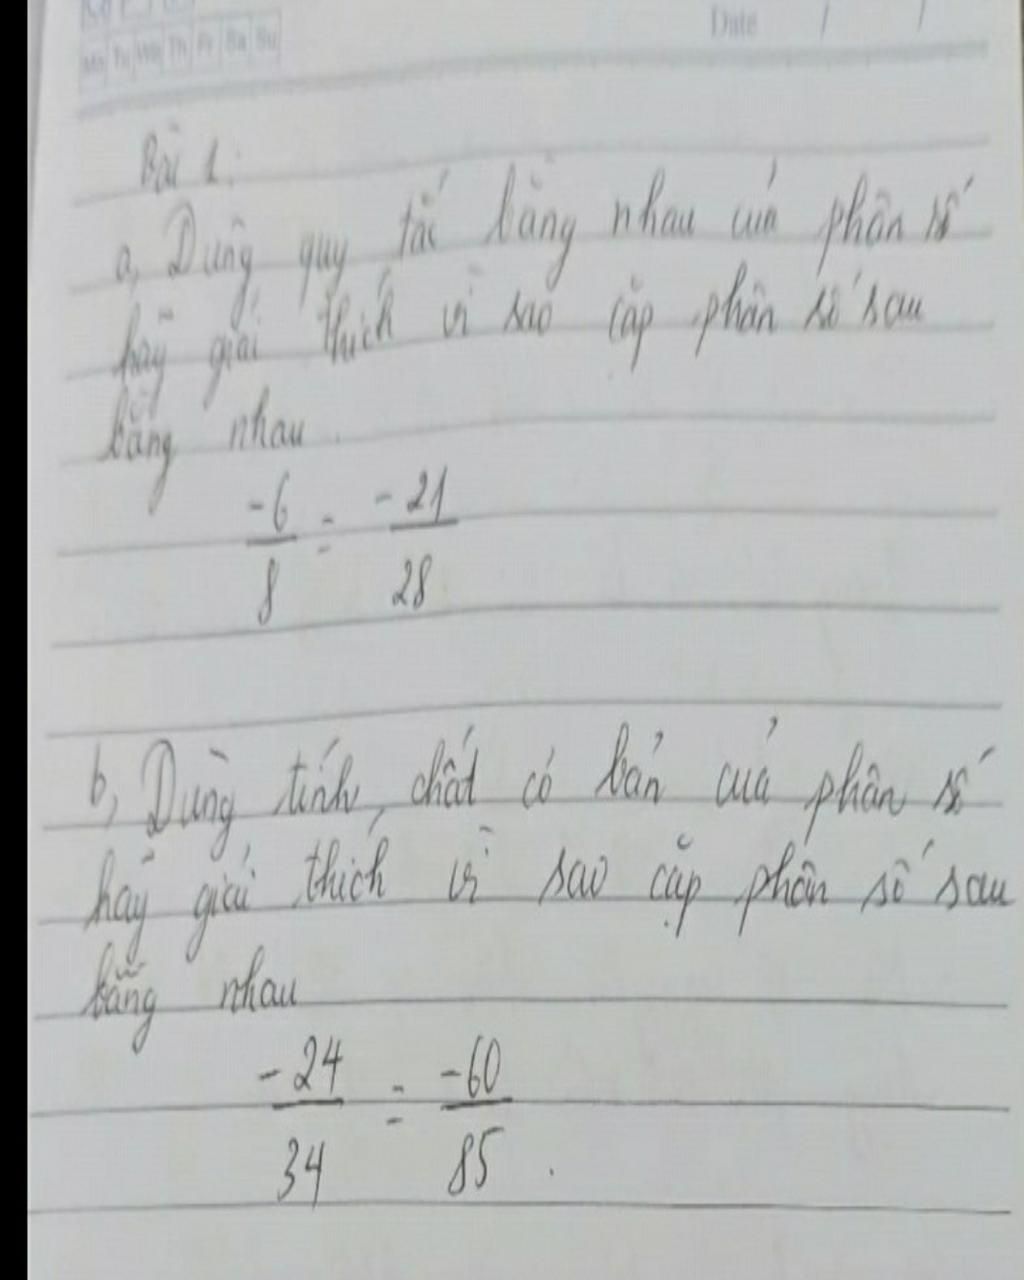 Date / /
Mo Tu We Th Fr Sa Su
Bài 1:
a, Dùng quy tắc bằng nhau của phân số
hãy giải thích vì sao cặp phân số sau
bằng nhau.
-6/8 = -21/28
b, Dùng tính chất có bản của phân số
hãy giải thích vì sao cặp phân số sau
bằng nhau
-24/34 = -60/85.